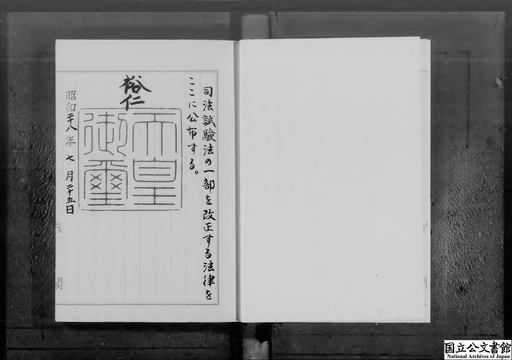 司法試験法の一部を改正する法律を
ここに公布する。
裕仁
天皇
御璽
昭和二十八年七月二十五日
国立公文書館
National Archives of Japan